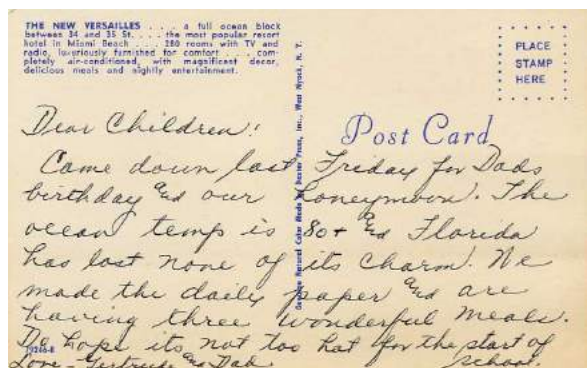 THE NEW VERSAILLES . . . a full ocean block
between 34 and 35 St. . . . the most popular resort
hotel in Miami Beach . . . 280 rooms with TV and
radio, luxuriously furnished for comfort . . . com-
pletely air-conditioned, with magnificent decor,
delicious meals and nightly entertainment.
PLACE
STAMP
HERE
Post Card
Genuine Natural Color Made by Dexter Press, Inc., West Nyack, N. Y.
Dear Children:
Came down last Friday for Dads
birthday and our honeymoon. The
ocean temp is 80+ and Florida
has lost none of its charm. We
made the daily paper and are
having three wonderful meals.
Do hope its not too hot for the start of
school.
Love - Gertrude and Dad.